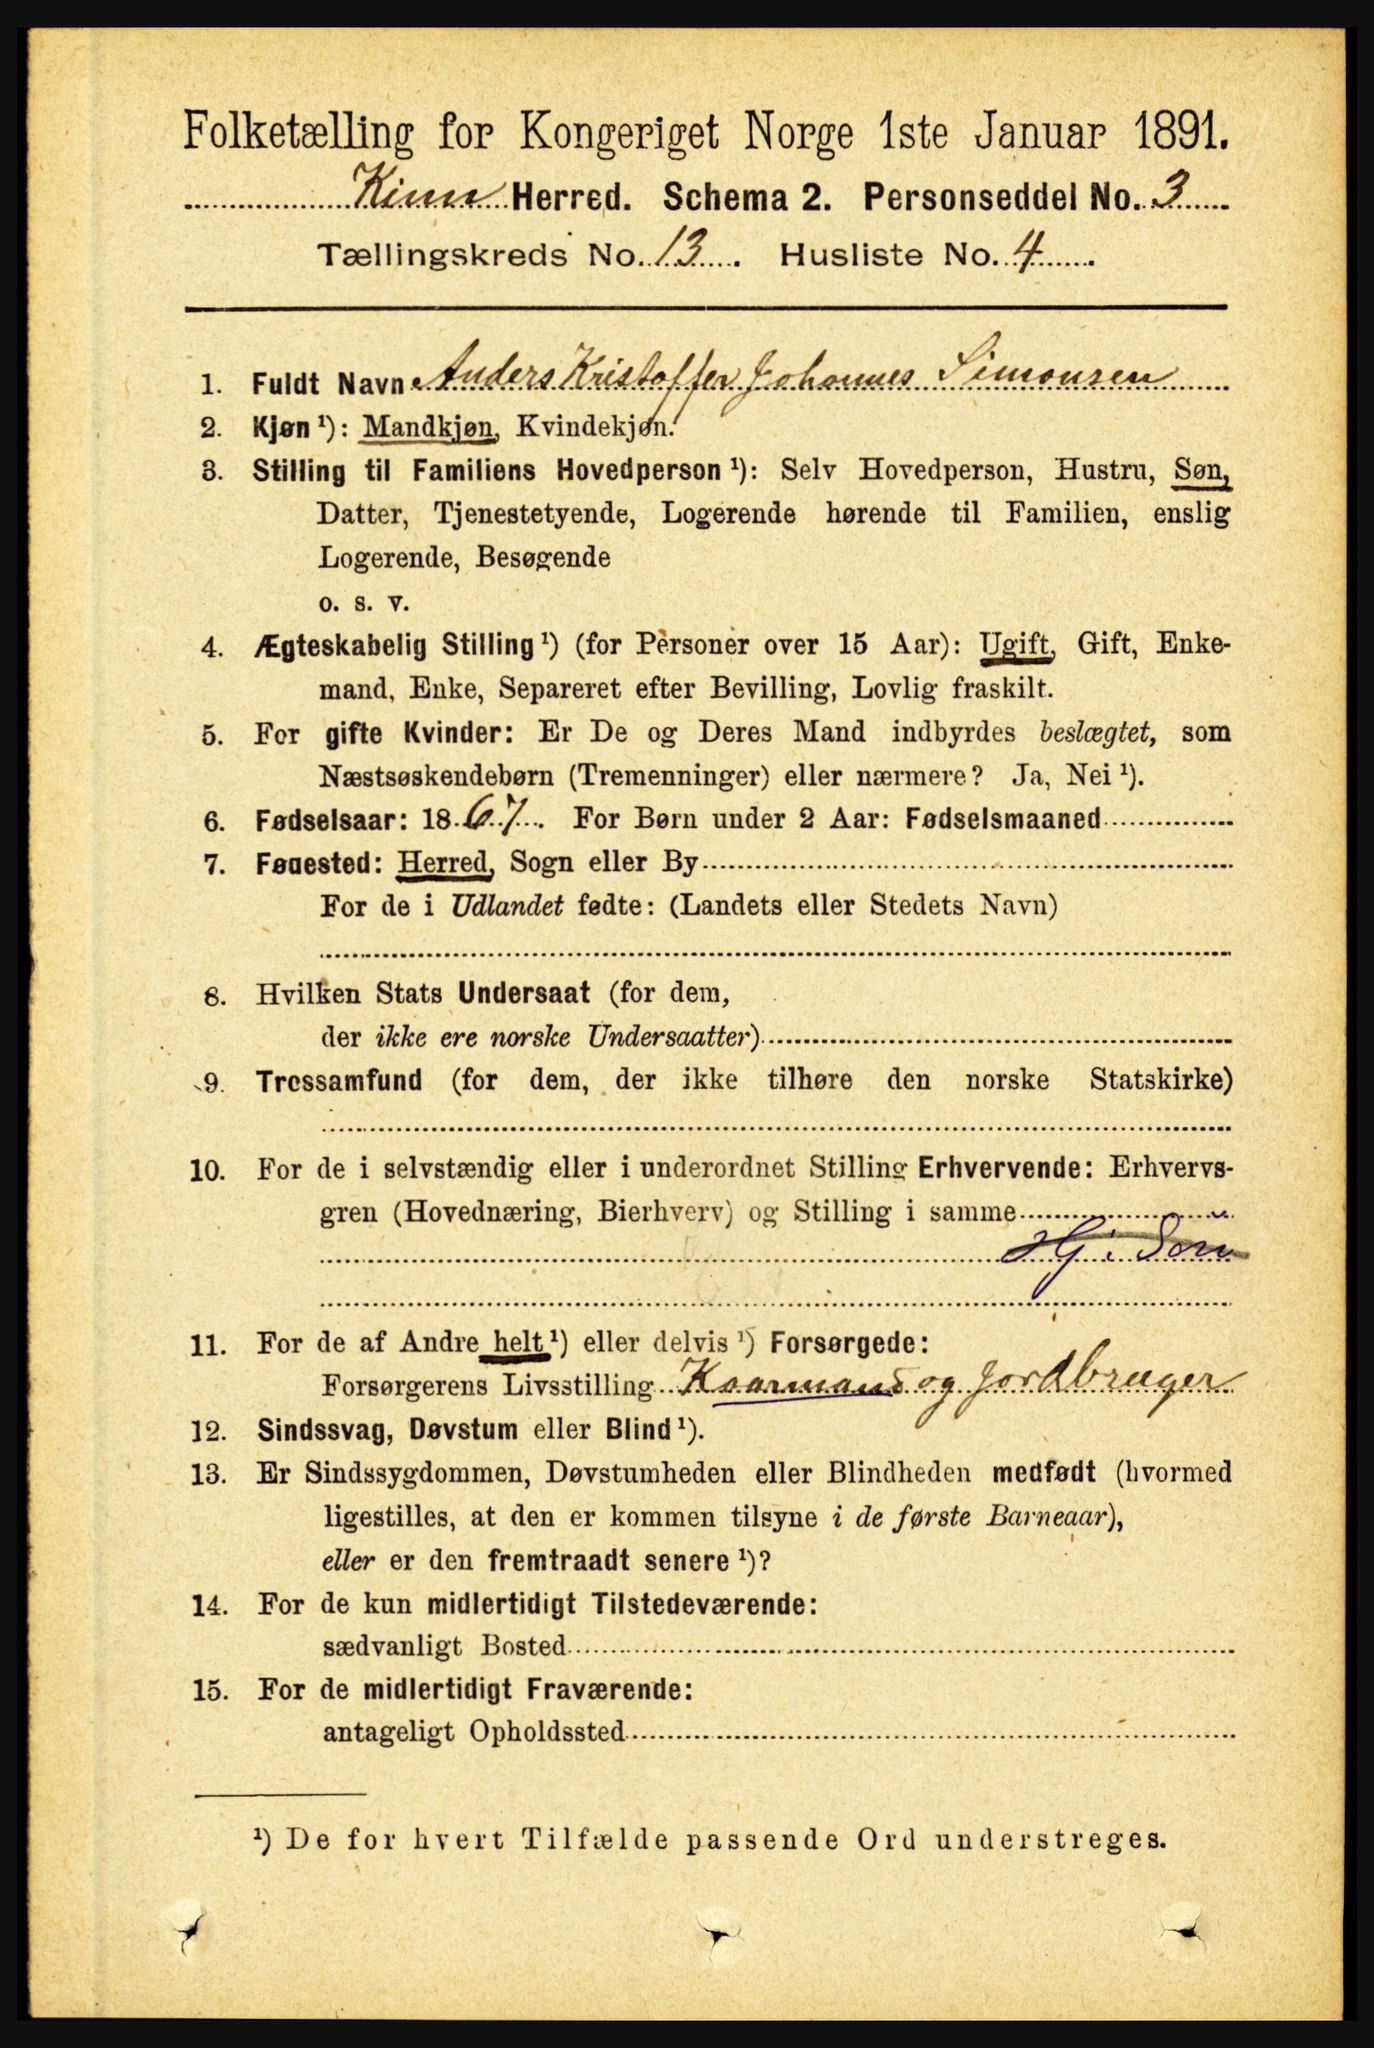 Folketælling for Kongeriget Norge 1ste Januar 1891.
Kinn Herred. Schema 2. Personseddel No. 3
Tællingskreds No. 13. Husliste No. 4
1. Fuldt Navn Anders Kristoffer Johannes Simonsen
2. Kjøn ¹): Mandkjøn, Kvindekjøn.
3. Stilling til Familiens Hovedperson ¹): Selv Hovedperson, Hustru, Søn,
Datter, Tjenestetyende, Logerende hørende til Familien, enslig
Logerende, Besøgende
o. s. v.
4. Ægteskabelig Stilling ¹) (for Personer over 15 Aar): Ugift, Gift, Enke-
mand, Enke, Separeret efter Bevilling, Lovlig fraskilt.
5. For gifte Kvinder: Er De og Deres Mand indbyrdes beslægtet, som
Næstsøskendebørn (Tremenninger) eller nærmere? Ja, Nei ¹).
6. Fødselsaar: 1867. For Børn under 2 Aar: Fødselsmaaned
7. Fødested: Herred, Sogn eller By
For de i Udlandet fødte: (Landets eller Stedets Navn)
8. Hvilken Stats Undersaat (for dem,
der ikke ere norske Undersaatter)
9. Trossamfund (for dem, der ikke tilhøre den norske Statskirke)
10. For de i selvstændig eller i underordnet Stilling Erhvervende: Erhvervs-
gren (Hovednæring, Bierhverv) og Stilling i samme
Hj. Søn
11. For de af Andre helt ¹) eller delvis ¹) Forsørgede:
Forsørgerens Livsstilling Kaarmand og Jordbruger
12. Sindssvag, Døvstum eller Blind ¹).
13. Er Sindssygdommen, Døvstumheden eller Blindheden medfødt (hvormed
ligestilles, at den er kommen tilsyne i de første Barneaar),
eller er den fremtraadt senere ¹)?
14. For de kun midlertidigt Tilstedeværende:
sædvanligt Bosted
15. For de midlertidigt Fraværende:
antageligt Opholdssted
¹) De for hvert Tilfælde passende Ord understreges.